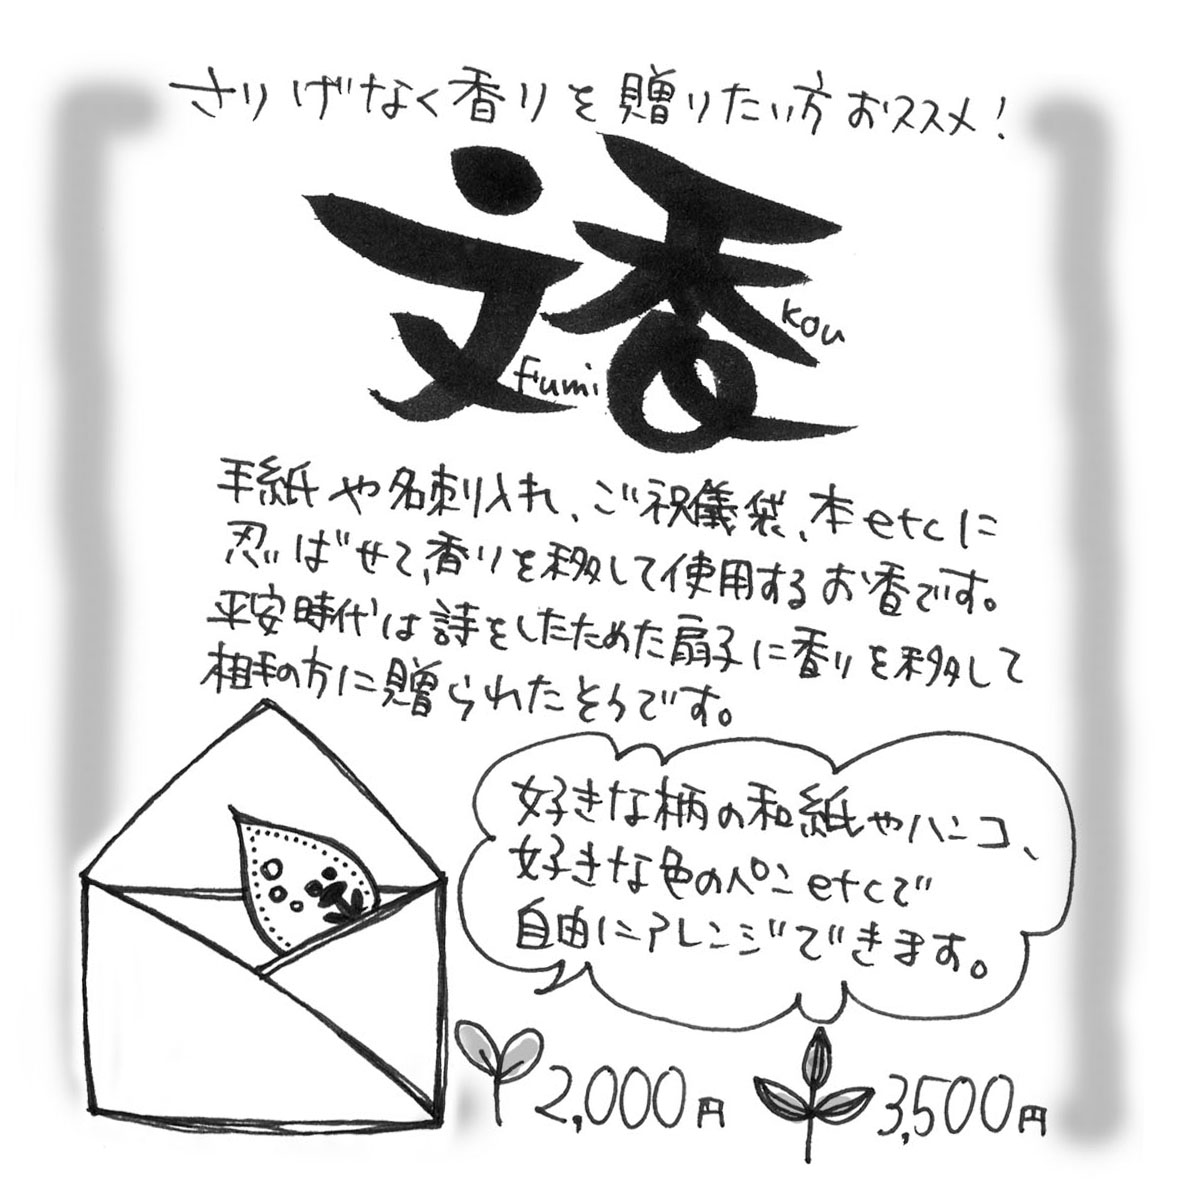 さりげなく香りを贈りたい方おススメ!
文香
fumi
kou
手紙や名刺入れ、ご祝儀袋、本etcに
忍ばせて、香りを移して使用するお香です。
平安時代は詩をしたためた扇子に香りを移して
相手の方に贈られたとうです。
好きな柄の和紙やハンコ、
好きな色のペンetcで
自由にアレンジできます。
2,000円
3,500円